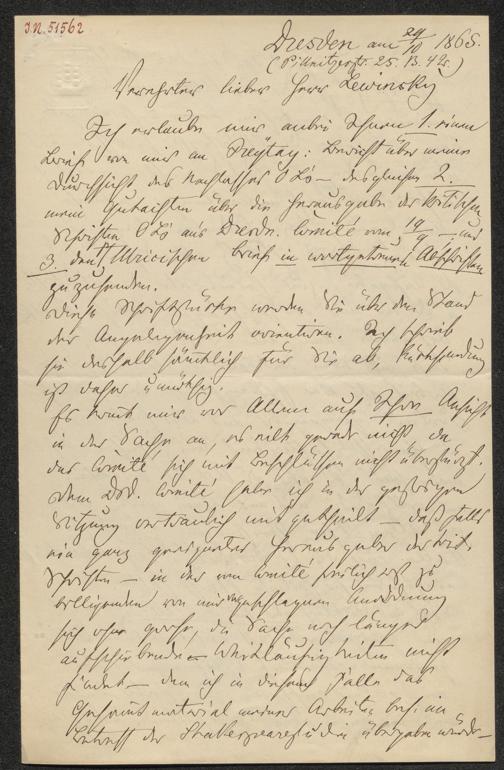 J.N. 51562
Dresden am 29/10 1865.
(Pillnitzerstr. 25. B. 4 Tr.)
Verehrter lieber Herr Lewinsky
Ich erlaube mir anbei Ihnen 1. einen
Brief von mir an Freytag: Bericht über meine
Durchsicht des Nachlasses O L's – desgleichen 2.
mein Gutachten über die Herausgabe der kritischen
Schriften O L's ans Dresdn. Comité vom 19/9 – und
3. den Ulricischen Brief in wortgetreuen Abschriften
zuzusenden.
Diese Schriftstücke werden Sie über den Stand
der Angelegenheit orientiren. Ich schrieb
sie deshalb sämtlich für Sie ab, Rücksendung
ist daher unnöthig.
Es kommt mir vor Allem auf Ihre Ansicht
in der Sache an, es eilt gerade nicht, da
das Comité sich mit Beschlüssen nicht überstürzt.
Dem Dsd. Comité habe ich in der gestrigen
Sitzung vertraulich mitgetheilt – daß falls
ein ganz geeigneter Herausgeber der krit.
Schriften – in der vom Comité freilich erst zu
billigenden von mir vorgeschlagenen Anordnung
sich ohne große, die Sache noch länger
aufschiebende Weitläufigkeiten nicht
findet – dem ich in diesem Falle das
Gesammtmaterial meiner Arbeiten bes. im
Betreff der Shakespearestudien übergeben würde –